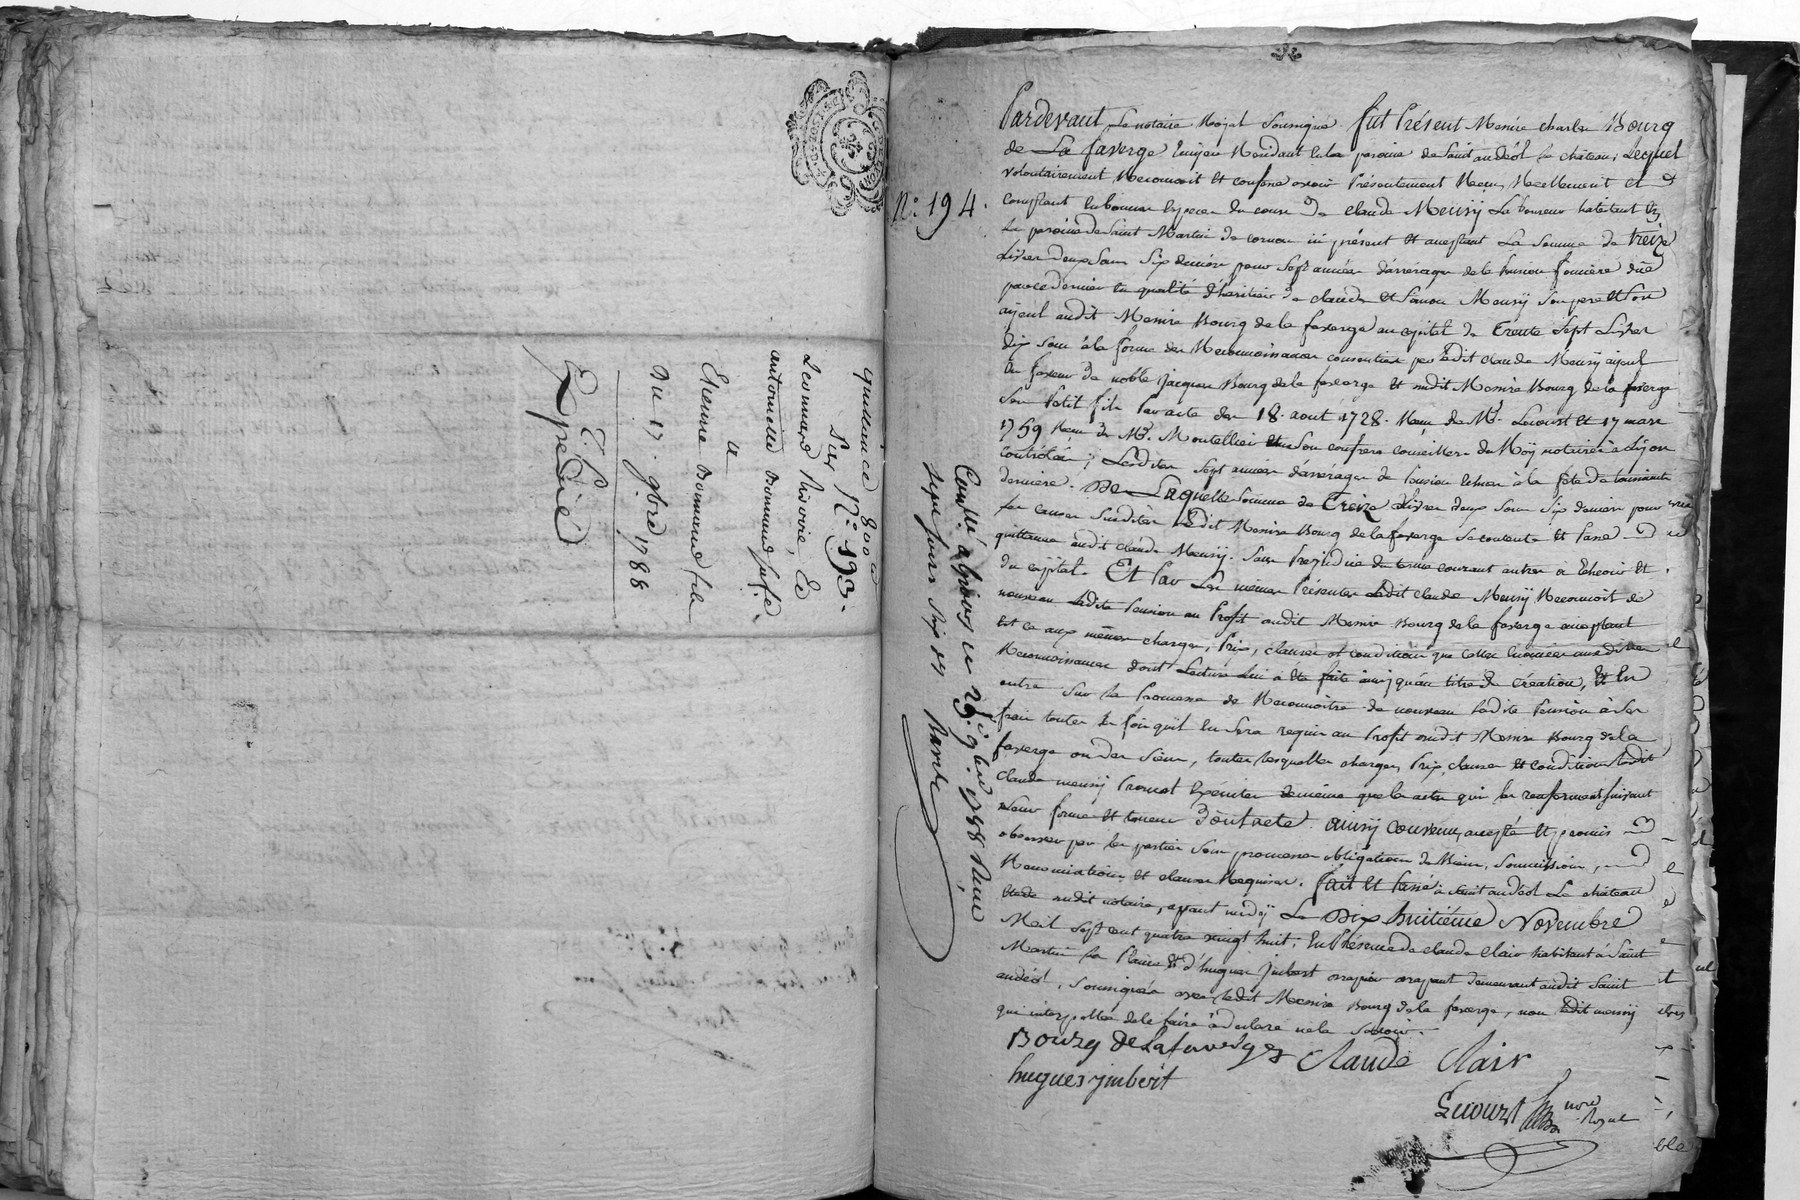 quittance 800 #
Sur N.° 193.
Leonnard Rivoire, Et
antoinette Bonnand sa fe.
a
Etienne Bonnand fils
Du 17. 9bre 1788
Expedié
N.° 194.
Pardevant Le notaire Royal soussigné fut Présent Messire charles Bourg
de La faverge Ecuyer Residant en la paroisse de Saint andéol le château; Lequel
volontairement Reconnoit et confesse avoir Présentement Reçu Réellement et
comptant en bonnes especes du cours de claude Meusÿ Laboureur habitant en
La paroisse de Saint Martin de cornas ici présent et acceptant La Somme de treize
Livres deux Sous Six deniers pour Sept années d'arrérages de la Pension fonciére düe
par ce dernier en qualité d'héritier de claude et Simon Meusÿ Son pere et Son
aÿeul audit Messire Bourg de la faverge au capital de trente Sept Livres
dix sous à la forme des Reconnoissances consenties par ledit claude Meusÿ aÿeul
En faveur de noble Jacques Bourg de la faverge et audit Messire Bourg de la faverge
Son Petit fils Par actes des 18. aout 1728. Reçu de Me. Lecourt et 17 mars
1759 Reçu de Me. Montellier et Son confrere conseillers du Roÿ notaires à Lÿon
controlés; Lesdites Sept années d'arrérages de Pension échues à la fête de toussaints
derniere. De Laquelle Somme de Treize Livres deux Sous Six deniers pour
les causes Susdites ledit Messire Bourg de la faverge Se contente et Passe
quittance audit claude Meusÿ. Sans Préjudice du terme courant autres a Echeoir et
du capital. Et Par Les mêmes Présentes Ledit claude Meusÿ Reconnoit de
nouveau Ladite Pension au Profit audit Messire Bourg de la faverge acceptant
Et ce aux mêmes charges, Prix, clauses et conditions que celles énoncées auxdites
Reconnoissances dont Lecture lui a été faite ainsÿ qu'au titre de création, Et En
outre Sur la Promesse de Reconnoitre de nouveau Ladite Pension à Ses
frais toutes les fois qu'il En Sera requis au Profit audit Messire Bourg de la
faverge ou des Siens, toutes lesquelles charges, Prix, clauses Et conditions Ledit
claude meusÿ Promet Exécuter de même que les actes qui les renferment suivant
Leur forme et teneur D'ont acte. ainsÿ convenu, accepté Et promis
observer par les parties Sous promesses obligations de Biens, Soumissions,
Renonciations et clauses Requises. fait et Passé à Saint andéol Le château
Etude audit notaire, avant midÿ Le Dix huitiéme Novembre
Mil Sept cent quatre vingt huit. En Présence de claude Clair habitant à Saint
Martin la Plaine Et d'hugues Jmbert demeurant audit Saint
andéol, Soussignés avec Ledit Messire Bourg de la faverge, non Ledit meusÿ
qui interpellé de le faire à déclaré ne le Savoir.
Bourg de la faverge Claude Clair
hugues jmbert
Lecourt nore Royal
Conllé à Givors le 29. 9bre 1788 Reçu